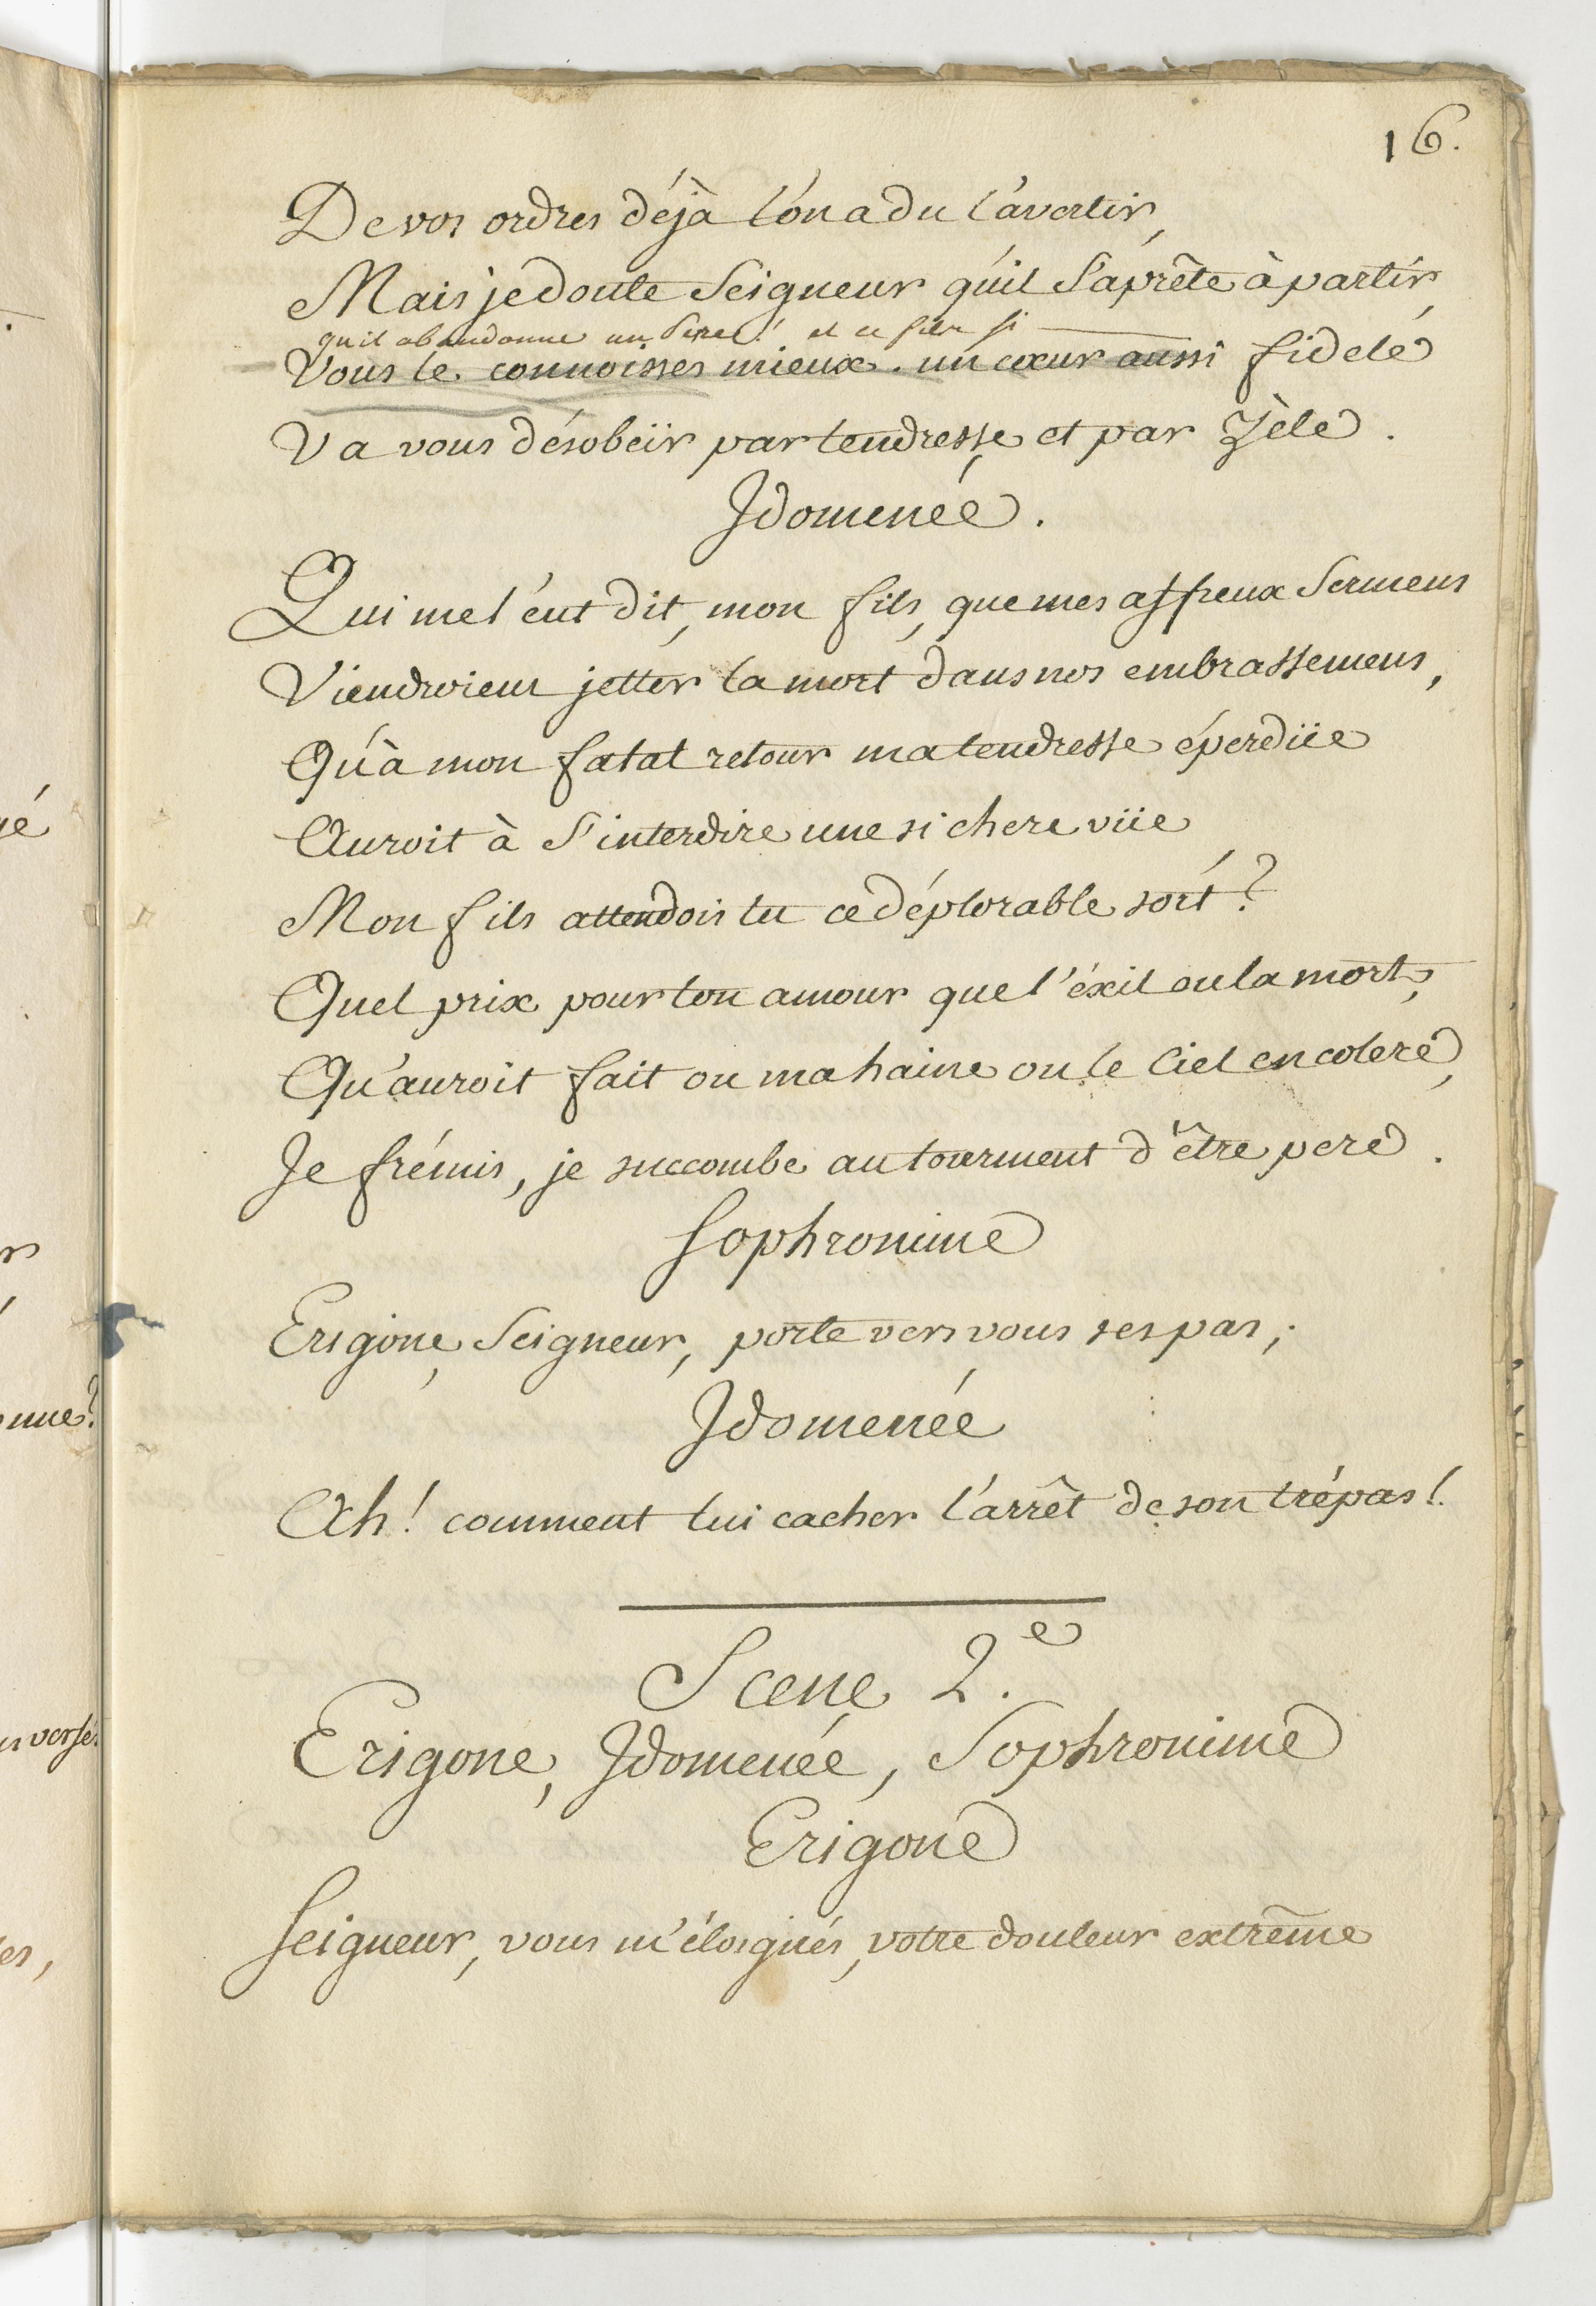 16.
De vos ordres déjà l'on a du l'avertir,
Mais je doute Seigneur qu'il S'aprête à partir,
qu'il abandonne un Pere! et ce fils si
Vous le connoisses mieux. un cœur aussi fidele
Va vous désobeïr par tendresse et par zèle.
Idomenée.
Qui me l'eut dit, mon fils, que mes affreux Sermens
Viendroient jetter la mort dans nos embrassemens,
Qu'à mon fatal retour ma tendresse éperdüe
Auroit à S'interdire une si chere vüe
Mon fils attendois tu ce déplorable sort?
Quel prix pour ton amour que l'éxil ou la mort,
Qu'auroit fait ou ma haine ou le Ciel en colere,
Je frémis, je succombe au tourment d'être pere.
Sophronime
Erigone, Seigneur, porte vers vous ses pas;
Idomenée
Ah! comment lui cacher l'arrêt de son trépas!
Scene 2.e
Erigone, Idomenée, Sophronime
Erigone
Seigneur, vous m'éloignés, votre douleur extrême
né
r
onne?
verse
es,